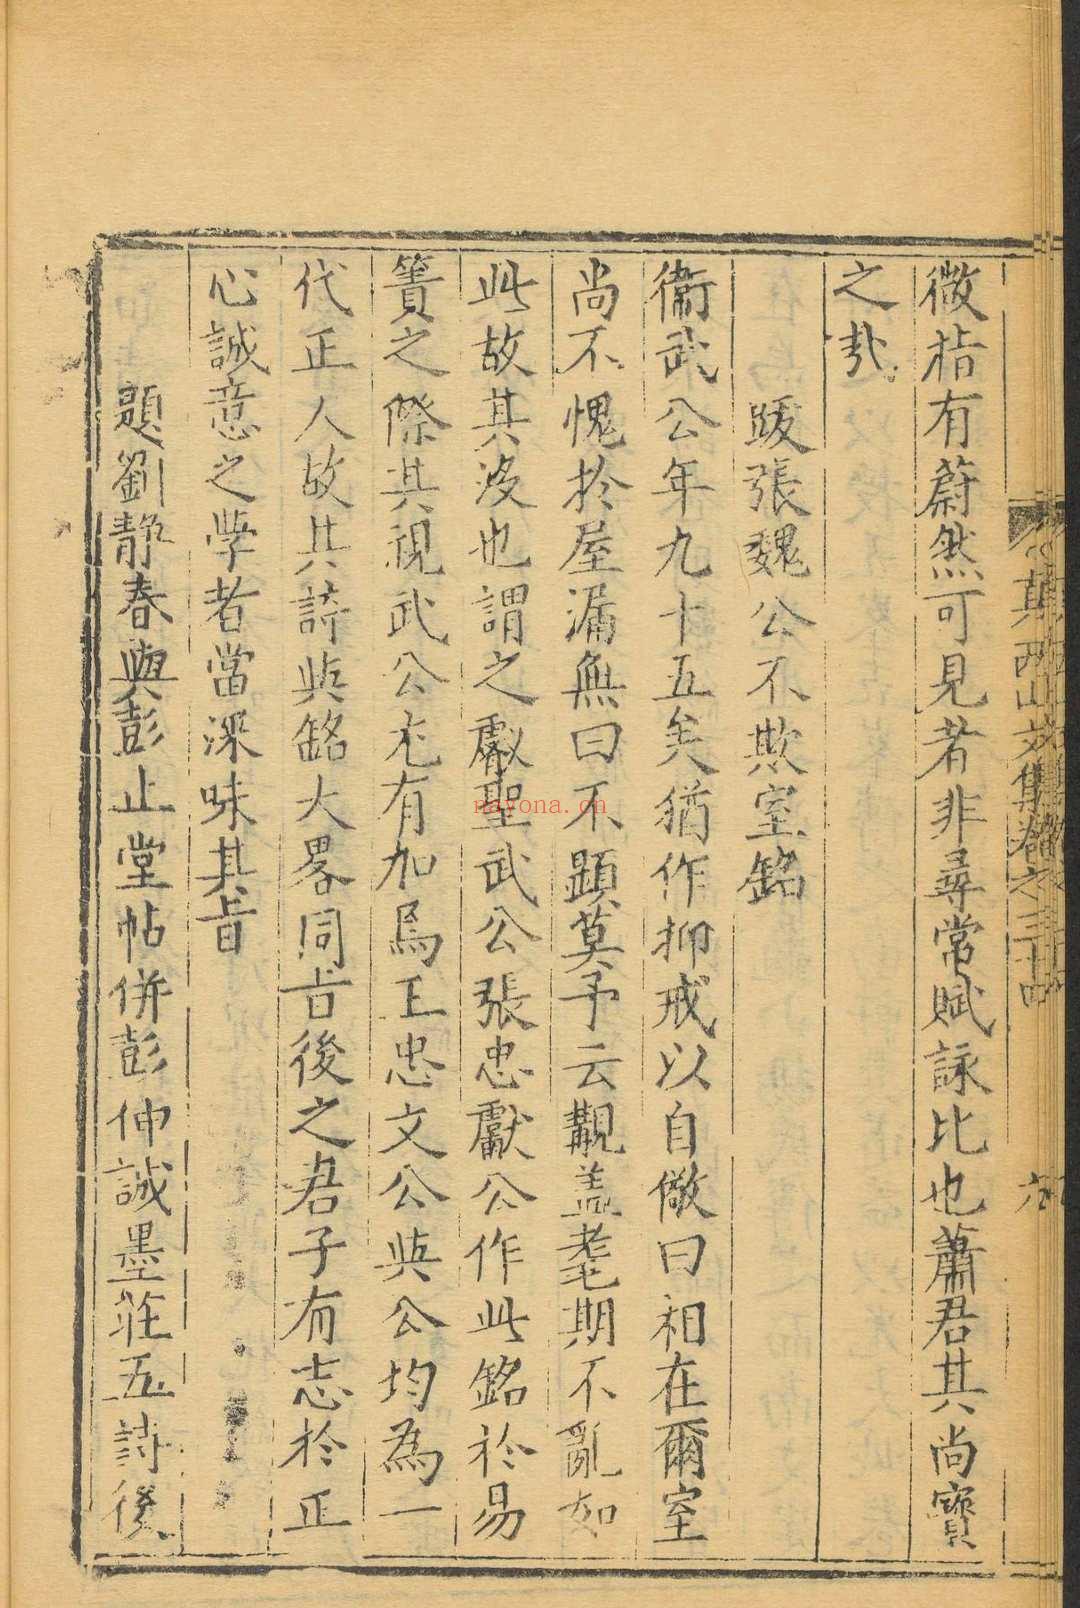 真西山文集卷之三十四
六
微指有蔚然可見者非尋常賦詠比也蕭君其尚寳
之㢤
跋張魏公不欺室銘
衞武公年九十五矣猶作抑戒以自儆曰相在爾室
尚不愧於屋漏無曰不顯莫予云覯盖耄期不亂如
此故其没也謂之叡聖武公張忠獻公作此銘於易
簀之際其視武公尤有加焉王忠文公與公均為一
代正人故其詩與銘大畧同㫖後之君子有志於正
心誠意之學者當深味其㫖
題劉靜春與彭止堂帖併彭仲誠墨莊五詩後
nayona.cn